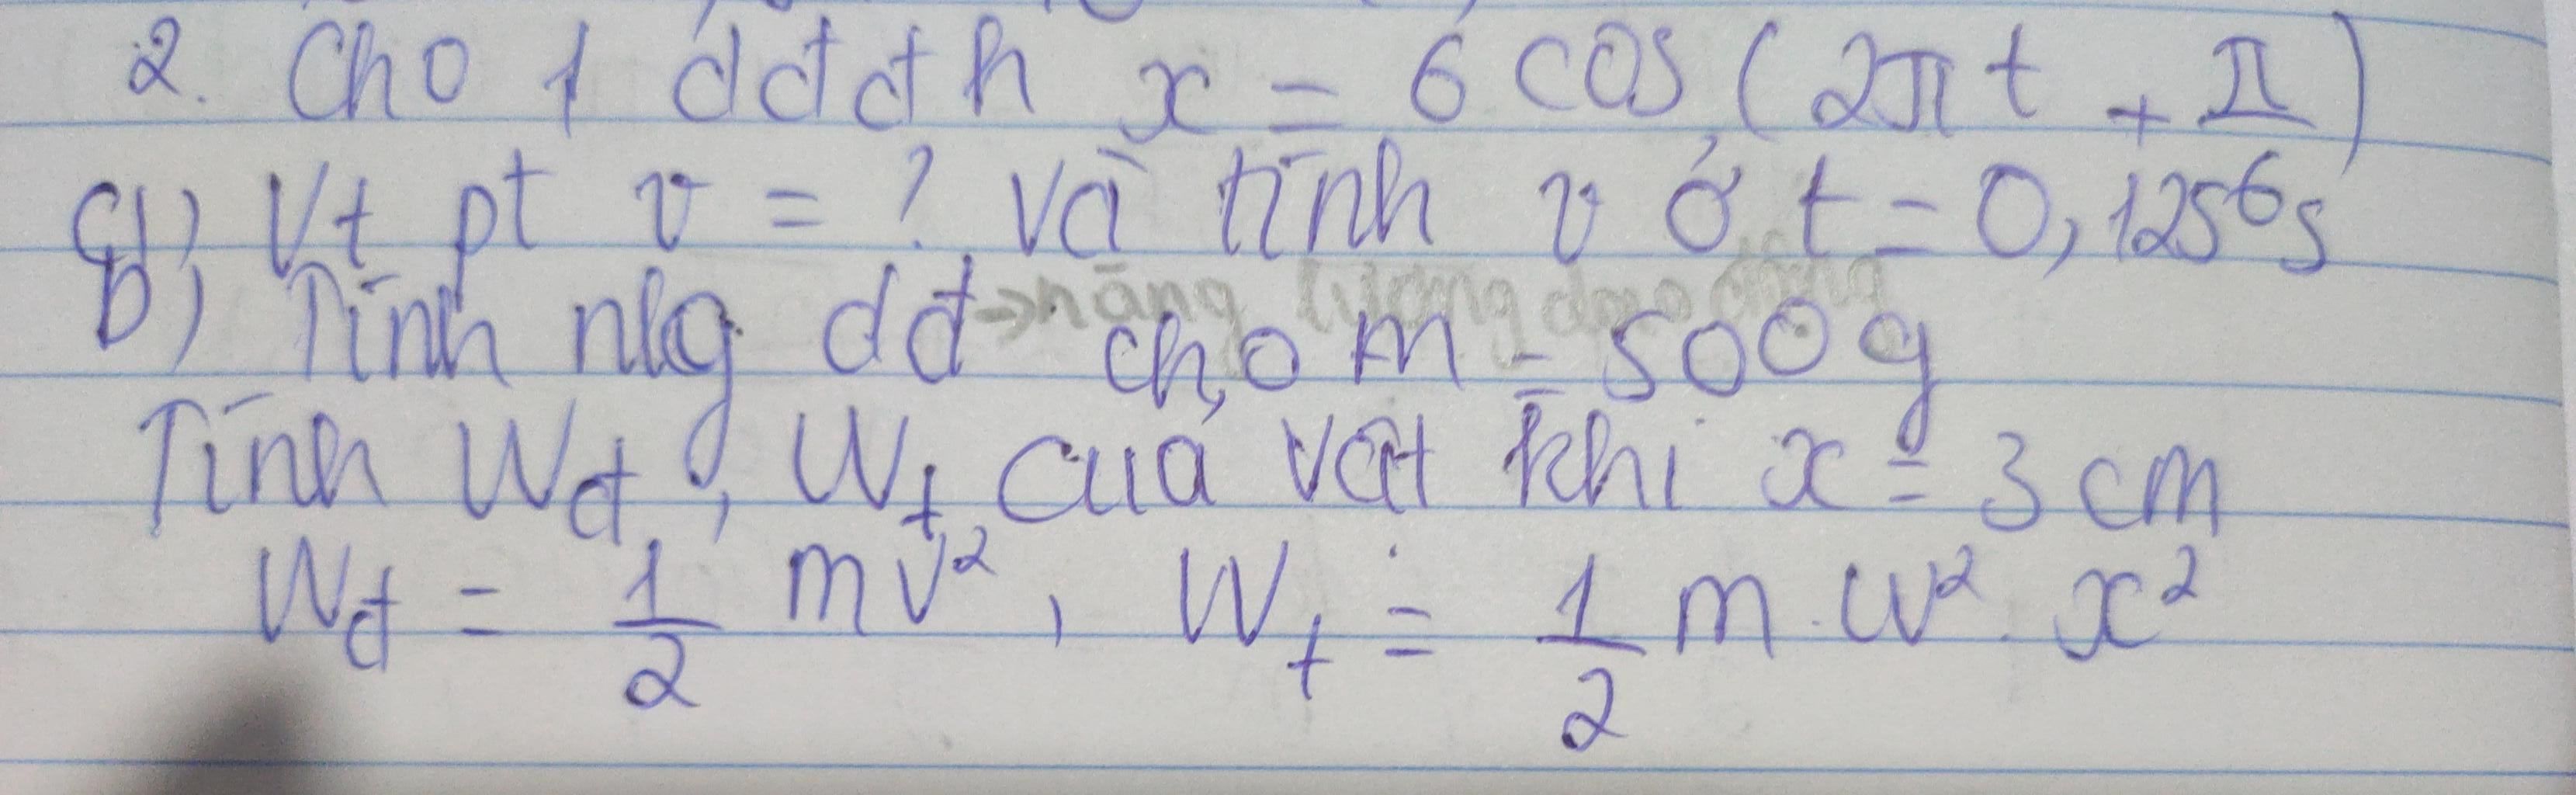 2. Cho 1 dđđh x = 6 cos (2πt + π/6)
a) Vt pt v = ? và tính v ở t = 0,125s
b) Tính nlg dđ → năng lượng dao động cho m = 500g
Tính Wđ, Wt của vật khi x = 3 cm
Wđ = 1/2 mv², Wt = 1/2 m.w².x²